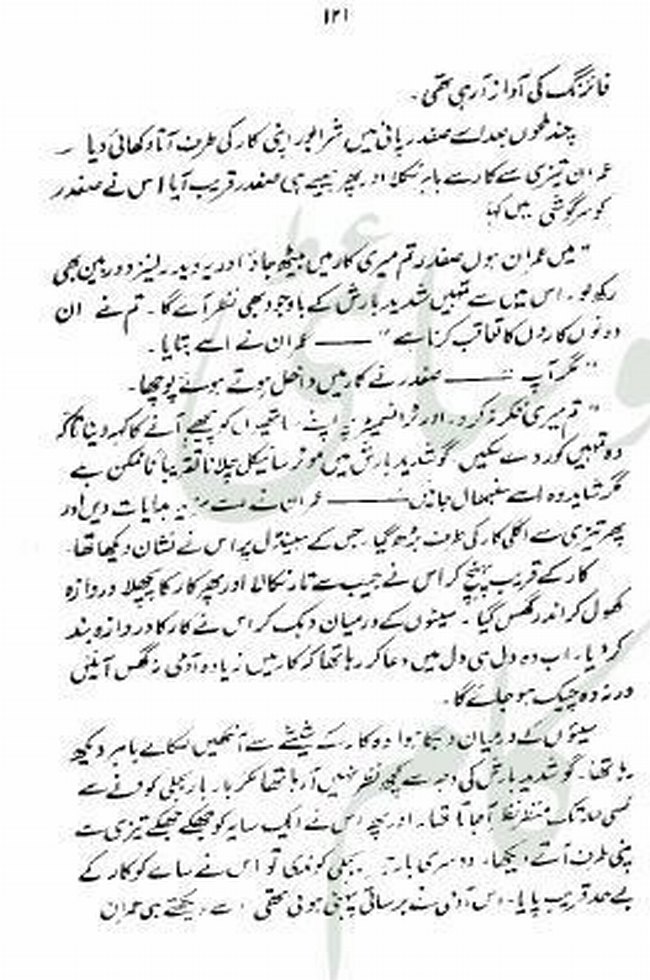 ۱۲۱
فائرنگ کی آواز آرہی تھی ۔
چند لمحوں بعد اسے صفدر پانی میں شرابور اپنی کار کی طرف آتا دکھائی دیا ۔
عمران تیزی سے کار سے باہر نکلا اور پھر جیسے ہی صفدر قریب آیا اس نے صفدر
کو سرگوشی میں کہا
" میں عمران ہوں صفدر تم میری کار میں بیٹھ جاؤ اور یہ دیدر لینز دوربین بھی
رکھ لو ۔ اس میں سے تمہیں شدید بارش کے باوجود بھی نظر آئے گا ۔ تم نے ان
دونوں کاروں کا تعاقب کرنا ہے " —— عمران نے اسے بتایا ۔
" مگر آپ —— صفدر نے کار میں داخل ہوتے ہوئے پوچھا ۔
" تم میری فکر نہ کرو ۔ اور ٹرانسمیٹر پر اپنے ساتھیوں کو پیچھے آنے کا کہہ دینا تاکہ
وہ تمہیں کور دے سکیں ۔ گو شدید بارش میں موٹر سائیکل چلانا تقریباً ناممکن ہے
مگر شاید وہ اسے سنبھال جائیں —— عمران نے اسے مزید ہدایات دیں اور
پھر تیزی سے اگلی کار کی طرف بڑھ گیا ۔ جس کے ہینڈل پر اس نے نشان دیکھا تھا ۔
کار کے قریب پہنچ کر اس نے جیب سے تار نکالا اور پھر کار کا پچھلا دروازہ
کھول کر اندر گھس گیا ۔ سیٹوں کے درمیان دبک کر اس نے کار کا دروازہ بند
کر دیا ۔ اب وہ دل ہی دل میں دعا کر رہا تھا کہ کار میں زیادہ آدمی نہ گھس آئیں
ورنہ وہ چیک ہو جائے گا ۔
سیٹوں کے درمیان دبکا ہوا وہ کار کے شیشے سے آنکھیں لگائے باہر دیکھ
رہا تھا ۔ گو شدید بارش کی وجہ سے کچھ نظر نہیں آرہا تھا مگر بار بار بجلی کوندنے سے
کسی حد تک منظر نظر آجاتا تھا ۔ اور پھر اس نے ایک سایہ کو جھکے جھکے تیزی سے
اپنی طرف آتے دیکھا ۔ دوسری بار جب بجلی کوندی تو اس نے سائے کو کار کے
بے حد قریب پایا ۔ اس آدمی نے برساتی پہنی ہوئی تھی اسے دیکھتے ہی عمران